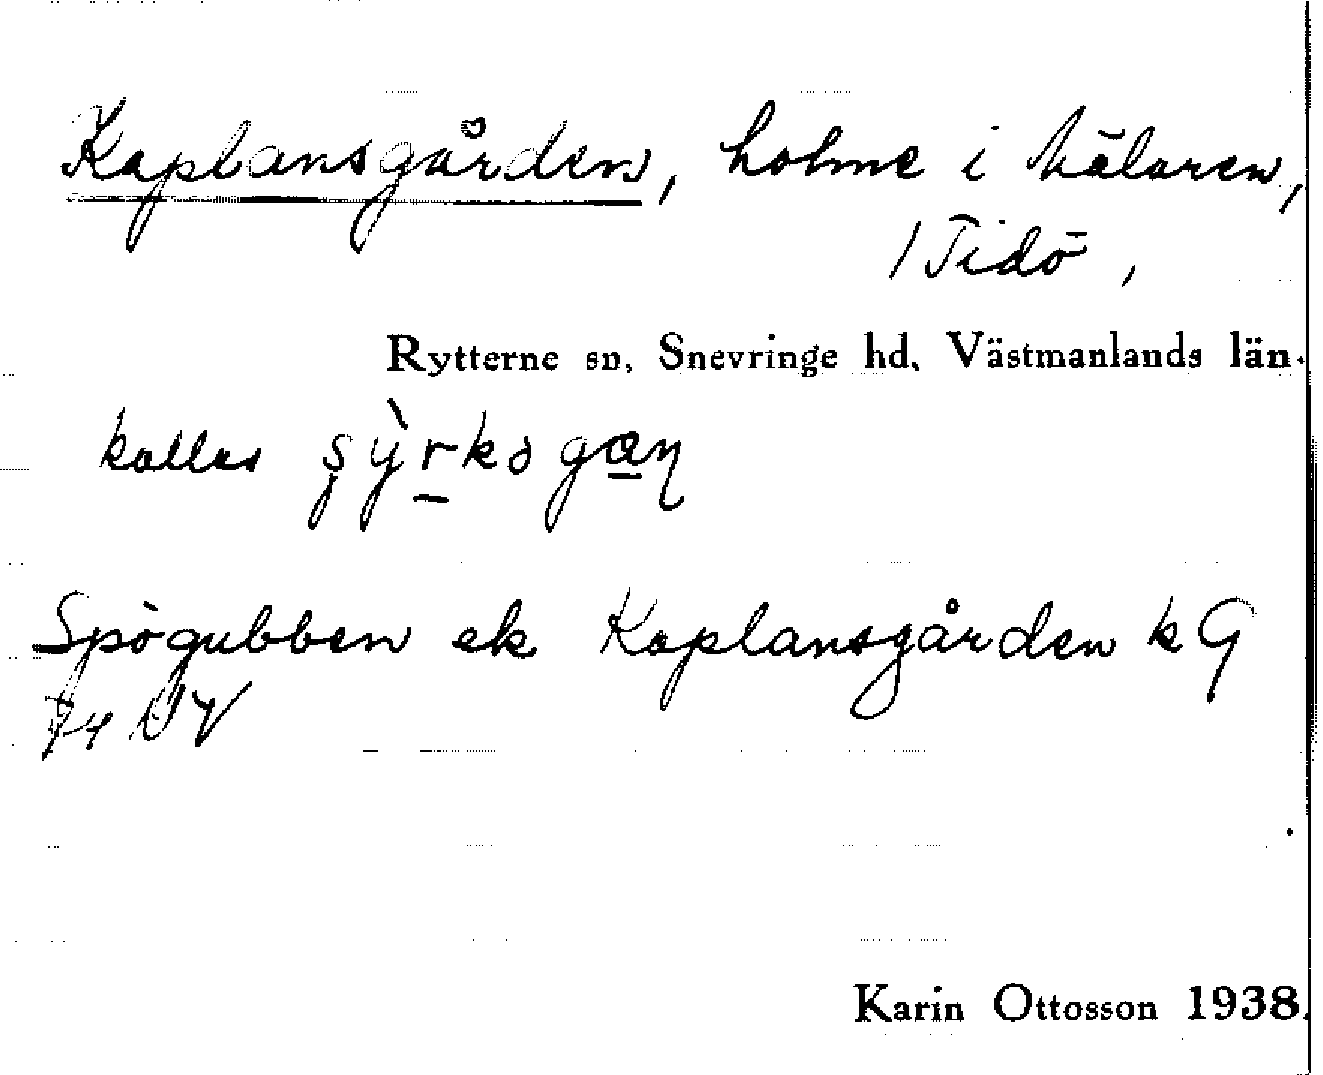 Kaplansgården, holme i Mälaren,
/ Tidö ,
Rytterne sn, Snevringe hd, Västmanlands län.
kallas
Spögubben ek Kaplansgården k G
Karin Ottosson 1938.